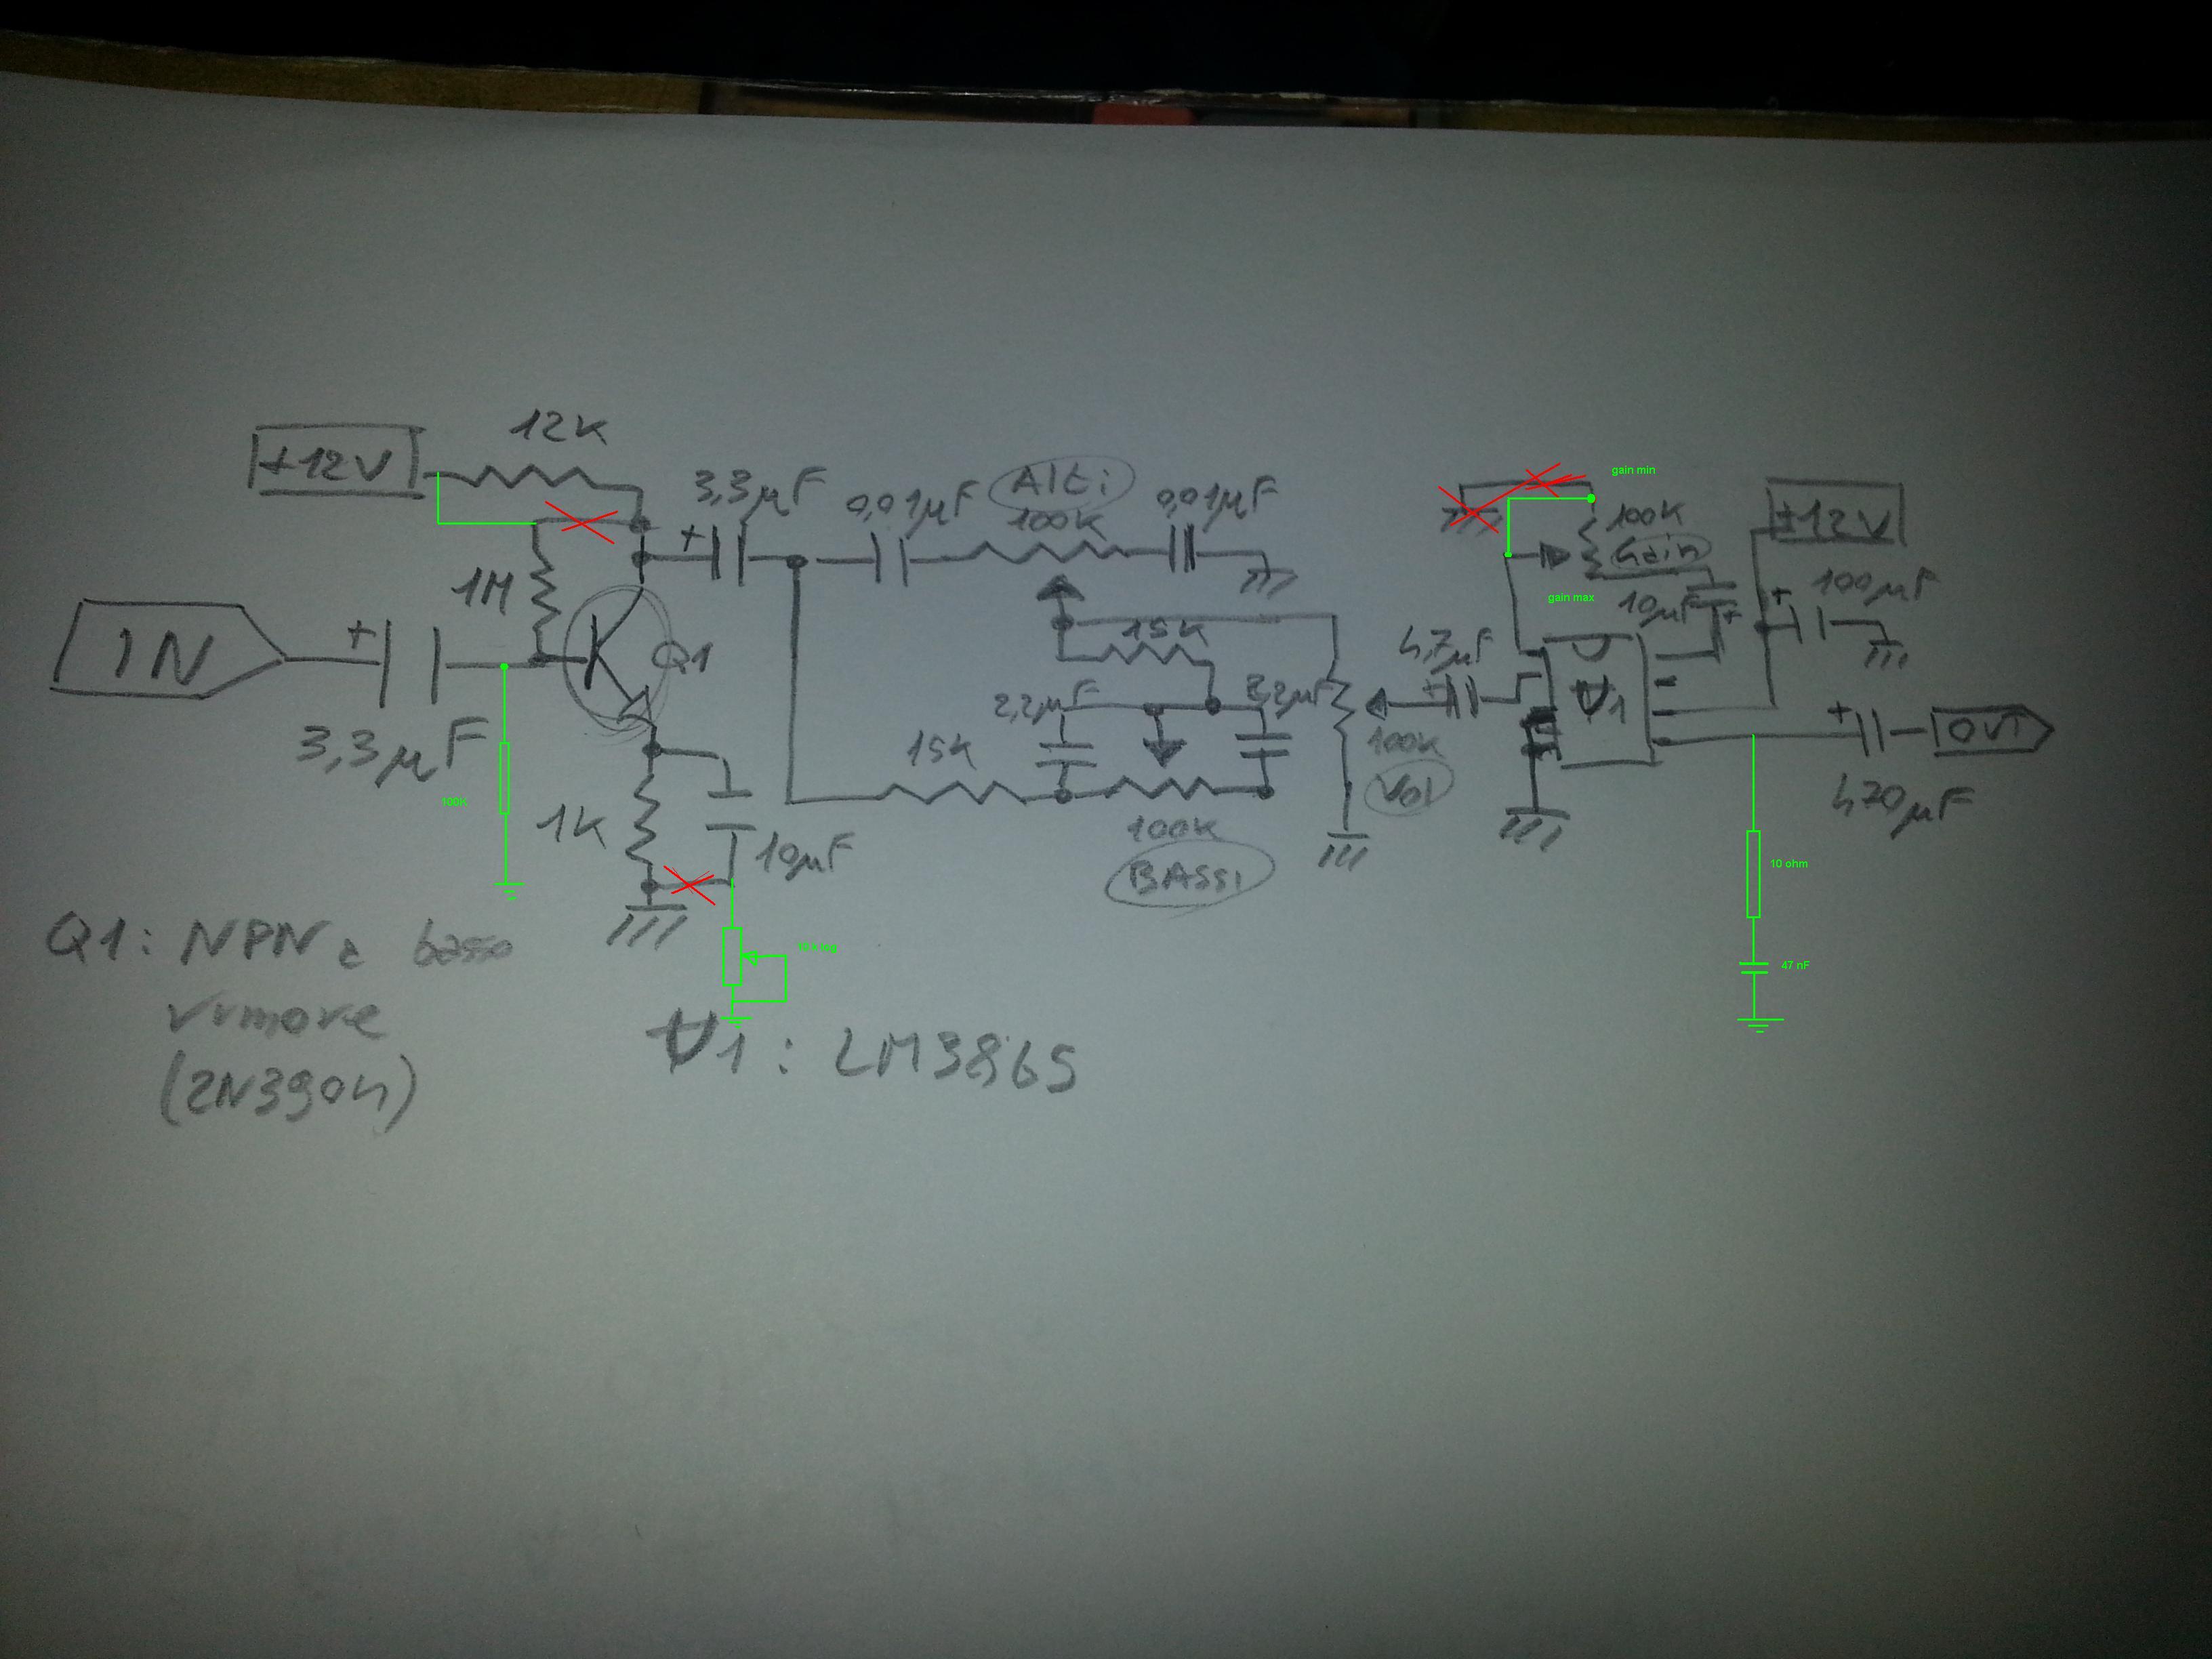 +12V
12K
3,3µF
0,01µF
Alti
100K
0,01µF
gain min
100K
Gain
+12V
1M
gain max
10µF
+
100µF
+
IN
+
3,3µF
Q1
+
15K
4,7µF
+
2,2µF
2,2µF
U1
+
OUT
100K
Vol
470µF
15K
100K
BASSI
100K
1K
10µF
10 ohm
47 nF
Q1: NPN a basso
rumore
(2N3904)
U1: LM386S